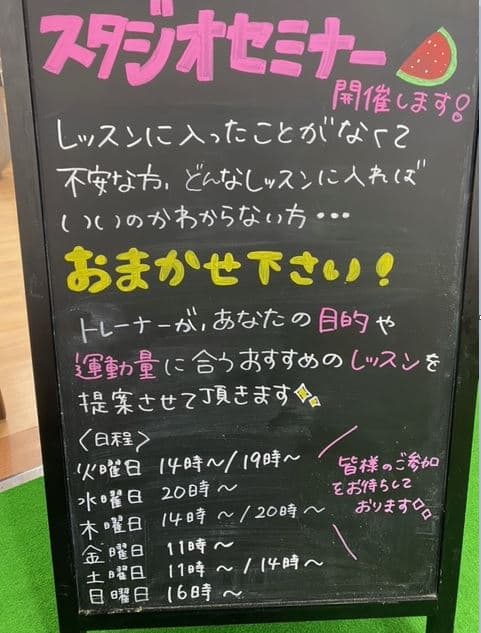 スタジオセミナー
開催します!
レッスンに入ったことがなくて
不安な方、どんなレッスンに入れば
いいのかわからない方・・・
おまかせ下さい!
トレーナーが、あなたの目的や
運動量に合うおすすめのレッスンを
提案させて頂きます
〈日程〉
火曜日 14時～/19時～
水曜日 20時～
木曜日 14時～/20時～
金曜日 11時～
土曜日 11時～/14時～
日曜日 16時～
皆様のご参加
をお待ちして
おります